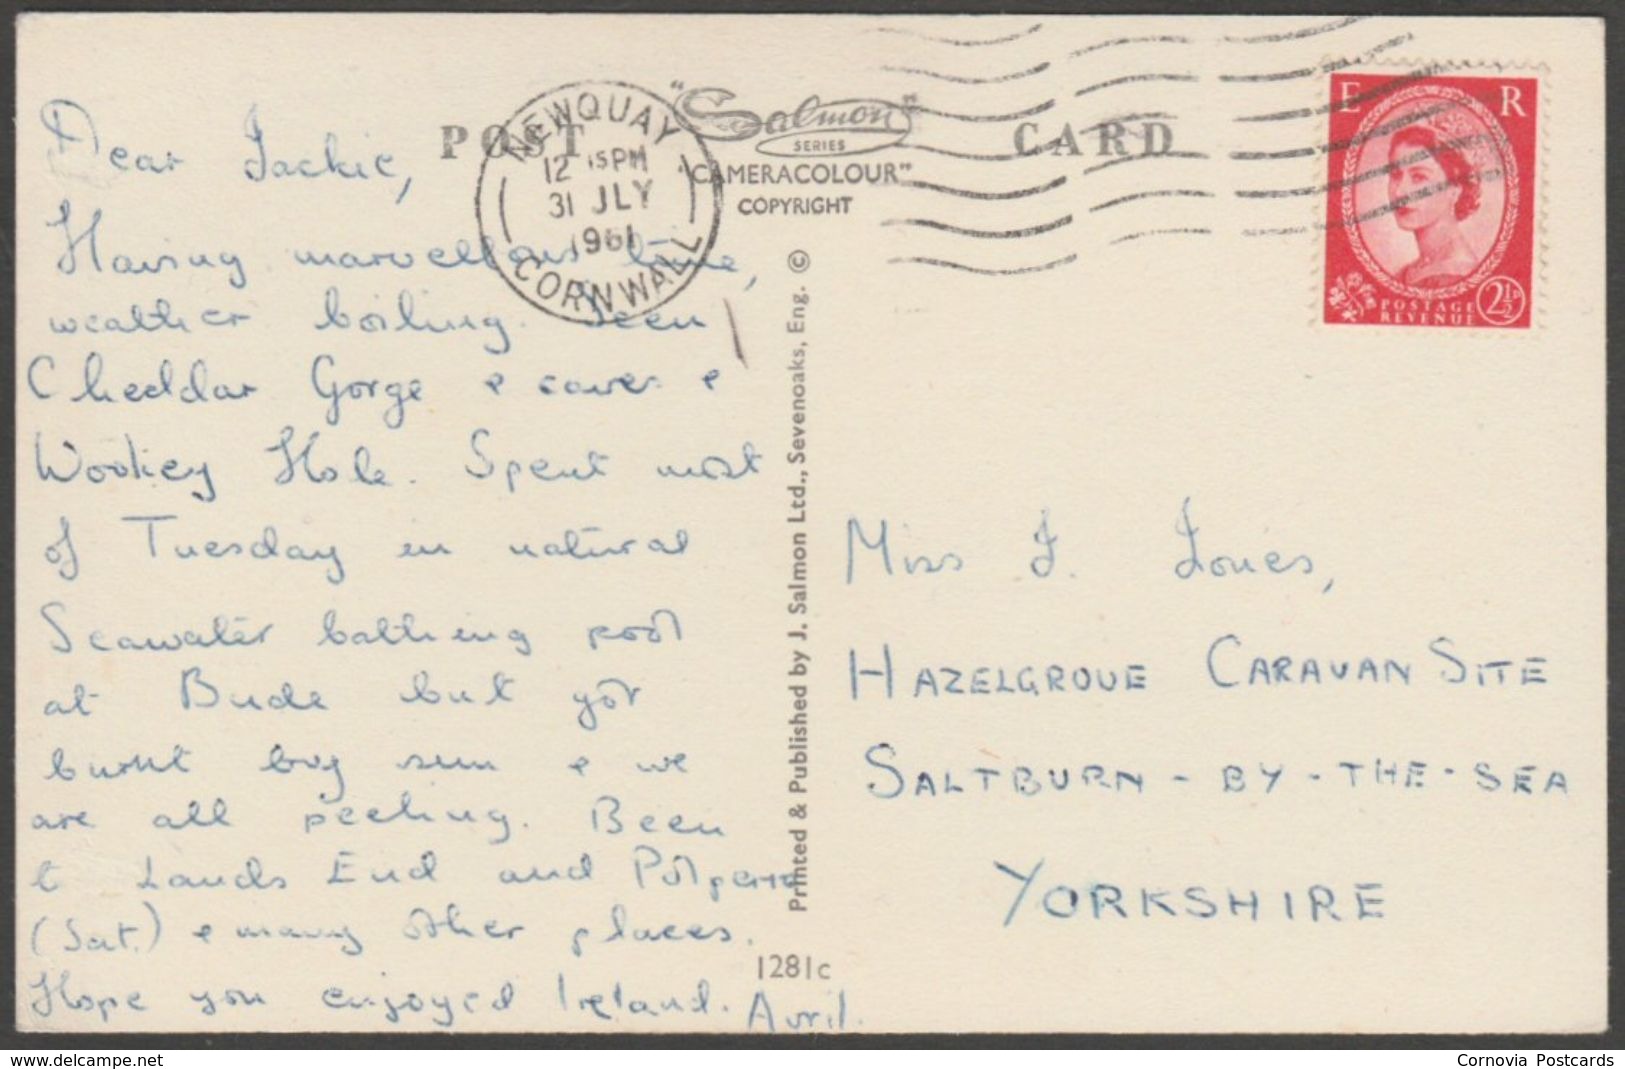 Dear Jackie,
Having marvellous time,
weather boiling. Seen
Cheddar Gorge & caves &
Wookey Hole. Spent most
of Tuesday in natural
Seawater bathing pool
at Bude but got
burnt by sun & we
are all peeling. Been
to Lands End and Polperro
(Sat.) & many other places.
Hope you enjoyed Ireland. Avril.
POST CARD
"Salmon"
SERIES
"CAMERACOLOUR"
COPYRIGHT
NEWQUAY
12 15 PM
31 JLY
1961
CORNWALL
E R
POSTAGE
REVENUE
2½D
Printed & Published by J. Salmon Ltd., Sevenoaks, Eng. ©
1281c
Miss J. Jones,
HAZELGROVE CARAVAN SITE
SALTBURN-BY-THE-SEA
YORKSHIRE
delcampe.net
Cornovia Postcards